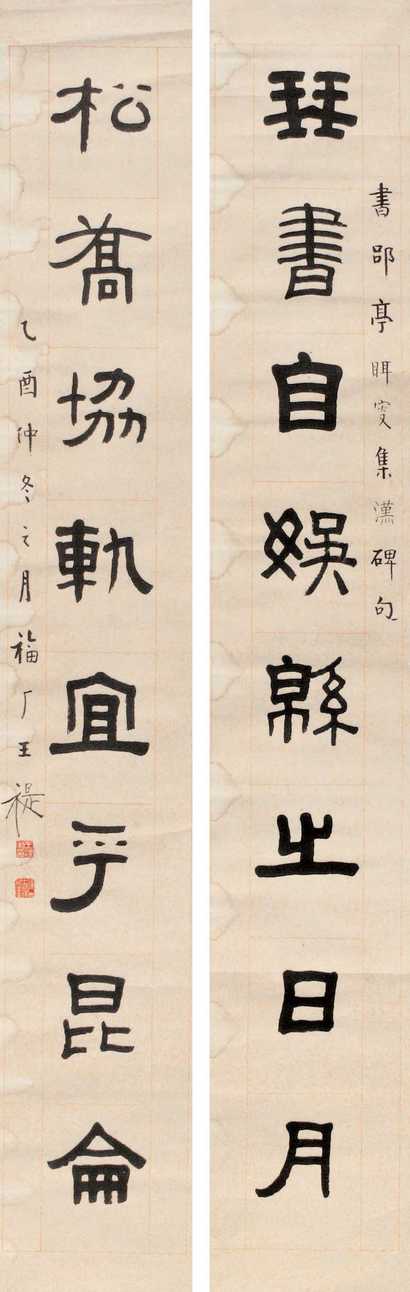 書郘亭眲叟集漢碑句
珡書自娛緜之日月
松喬協軌宜乎昆侖
乙酉仲冬之月福厂王禔